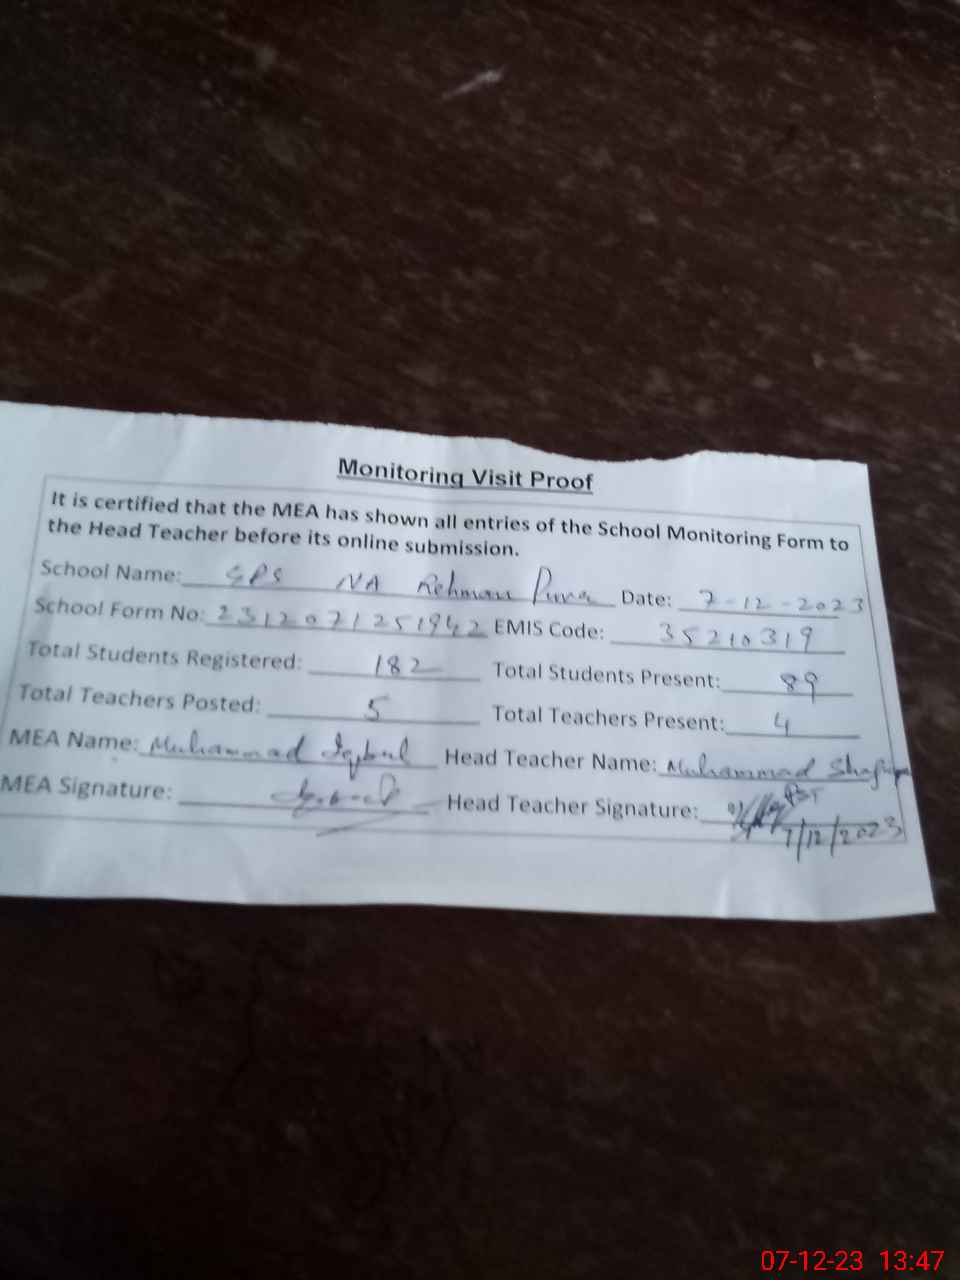 Monitoring Visit Proof
It is certified that the MEA has shown all entries of the School Monitoring Form to
the Head Teacher before its online submission.
School Name: GPS NA Rehman Pura Date: 7-12-2023
School Form No: 2312071251942 EMIS Code: 35210319
Total Students Registered: 182 Total Students Present: 89
Total Teachers Posted: 5 Total Teachers Present: 4
MEA Name: Muhammad Iqbal Head Teacher Name: Muhammad
MEA Signature: Head Teacher Signature: PST
7/12/2023
07-12-23 13:47